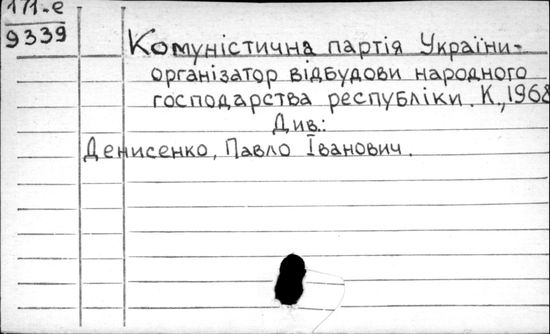 9339
Комуністична партія України-
організатор відбудови народного
господарства республіки. К.,1968
Див.:
Денисенко, Павло Іванович.